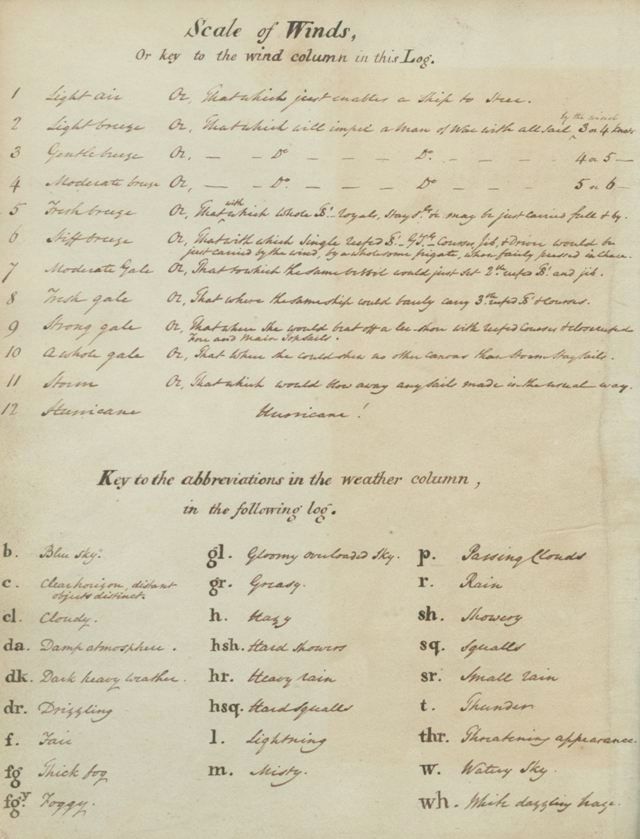 Scale of Winds,
Or key to the wind column in this Log.
1 Light air Or, That which just enables a Ship to Steer.
2 Light breeze Or, That which will impel a Man of War with all sail by the wind 3 or 4 knots
3 Gentle breeze Or, — — Do — — Do. — — — — 4 or 5 —
4 Moderate breeze Or, — — Do. — — Do — — — — 5 or 6 —
5 Fresh breeze Or, That with which whole Royals, Stay may be just carried full & by.
6 Stiff breeze Or, That with which Single reefed Courses, Jib, & Driver would be
just carried by the wind, by a wholesome frigate, when fairly pressed in chace.
7 Moderate Gale Or, That to which the same vessel would just set 2nd reefed and jib.
8 Fresh gale Or, That where the same ship could barely carry 3rd reefed & courses.
9 Strong gale Or, That where she would beat off a lee-shore with reefed Courses & close reefed
Fore and Main Topsails.
10 A whole gale Or, That where she could shew no other canvas than Storm Staysails.
11 Storm Or, That which would blow away any sails made in the usual way.
12 Hurricane Hurricane!
Key to the abbreviations in the weather column,
in the following log.
b. Blue sky.
c. Clear horizon, distant
objects distinct.
cl. Cloudy.
da. Damp atmosphere.
dk. Dark heavy weather.
dr. Drizzling
f. Fair
fg Thick fog
fgy. Foggy.
gl. Gloomy overloaded Sky.
gr. Greasy.
h. Hazy
hsh. Hard Showers
hr. Heavy rain
hsq. Hard Squalls
l. Lightning
m. Misty.
p. Passing Clouds
r. Rain
sh. Showery
sq. Squalls
sr. Small rain
t. Thunder
thr. Threatening appearance.
w. Watery Sky.
wh. White dazzling haze.